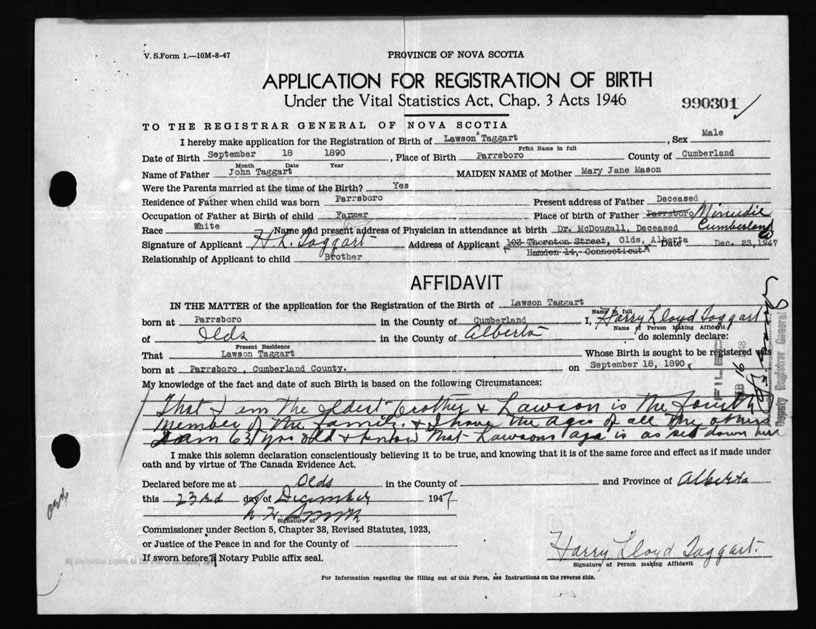 V. S. Form 1.—10M-8-47
PROVINCE OF NOVA SCOTIA
APPLICATION FOR REGISTRATION OF BIRTH
Under the Vital Statistics Act, Chap. 3 Acts 1946
990301
TO THE REGISTRAR GENERAL OF NOVA SCOTIA
I hereby make application for the Registration of Birth of Lawson Taggart, Sex Male
Print Name in full
Date of Birth September 18 1890, Place of Birth Parrsboro County of Cumberland
Month Date Year
Name of Father John Taggart MAIDEN NAME of Mother Mary Jane Mason
Were the Parents married at the time of the Birth? Yes
Residence of Father when child was born Parrsboro Present address of Father Deceased
Occupation of Father at Birth of child Farmer Place of Birth of Father Parrsboro Minudie
Race White Name and present address of Physician in attendance at birth Dr. McDougall, Deceased Cumberland Co
Signature of Applicant H L Taggart Address of Applicant 103 Thornton Street, Olds, Alberta Date Dec. 23, 1947
Hamden 14, Connecticut
Relationship of Applicant to child Brother
AFFIDAVIT
IN THE MATTER of the application for the Registration of the Birth of Lawson Taggart
Name in full
born at Parrsboro in the County of Cumberland I, Harry Lloyd Taggart
Name of Person Making Affidavit
of Olds in the County of Alberta do solemnly declare:
Present Residence
That Lawson Taggart Whose Birth is sought to be registered was
born at Parrsboro, Cumberland County. on September 18, 1890,
My knowledge of the fact and date of such Birth is based on the following Circumstances:
That I am the oldest brother & Lawson is the fourth
member of the family. & I have the ages of all the others
I am 63 yrs old & know that Lawsons age is as set down here
I make this solemn declaration conscientiously believing it to be true, and knowing that it is of the same force and effect as if made under
oath and by virtue of The Canada Evidence Act.
Declared before me at Olds in the County of and Province of Alberta
this 23rd day of December 1947
Signature of
Commissioner under Section 5, Chapter 38, Revised Statutes, 1923,
or Justice of the Peace in and for the County of
If sworn before a Notary Public affix seal.
Harry Lloyd Taggart.
Signature of Person making Affidavit
For Information regarding the filling out of this Form, see Instructions on the reverse side.
FILED
Deputy Registrar General